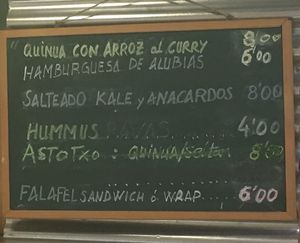 QUINUA CON ARROZ al CURRY 8'00
HAMBURGUESA DE ALUBIAS 6'00
SALTEADO KALE y ANACARDOS 8'00
HUMMUS ........ 4'00
ASTOTXO : QUINUA/Seitan 8'00
FALAFEL SANDWICH ó WRAP .... 6'00